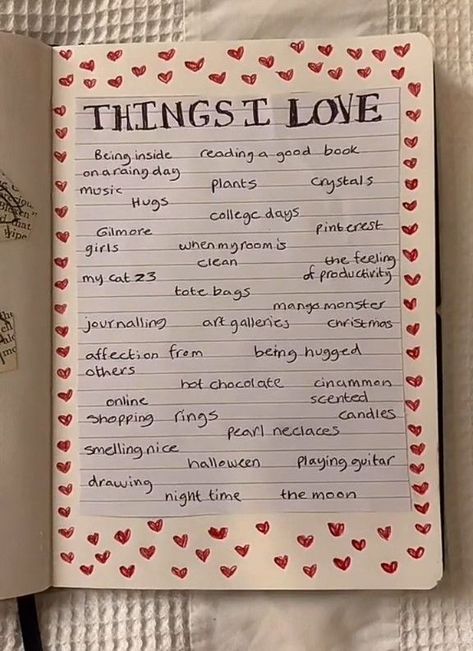 THINGS I LOVE
Being inside reading a good book
on a raing day
music plants Crystals
Hugs
college days
Gilmore pinterest
girls when my room is
clean the feeling
my cat z3 of productivity
tote bags
mango monster
journalling art galleries christmas
affection from being hugged
others
hot chocolate cinammon
online scented
shopping rings candles
pearl neclaces
smelling nice
halloween playing guitar
drawing
night time the moon